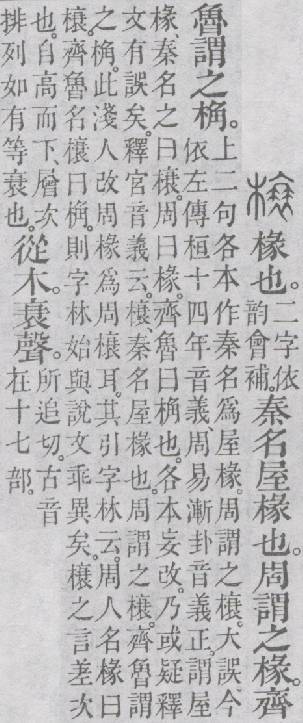 椽也。二字依韵會補。秦名屋椽也。周謂之椽。齊
魯謂之桷。上二句各本作秦名爲屋椽。周謂之榱。大誤。今依左傳桓十四年音義、周易漸卦音義正。謂屋
椽、秦名之曰榱。周曰椽。齊魯曰桷也。各本妄改。乃或疑釋文有誤矣。釋宫音義云。榱、秦名屋椽也。周謂之榱。齊魯謂
之桷。此淺人改周椽爲周榱耳。其引字林云。周人名椽曰榱。齊魯名榱曰桷。則字林始與說文乖異矣。榱之言差次
也。自高而下、層次排列如有等衰也。從木。衰聲。所追切。古音在十七部。